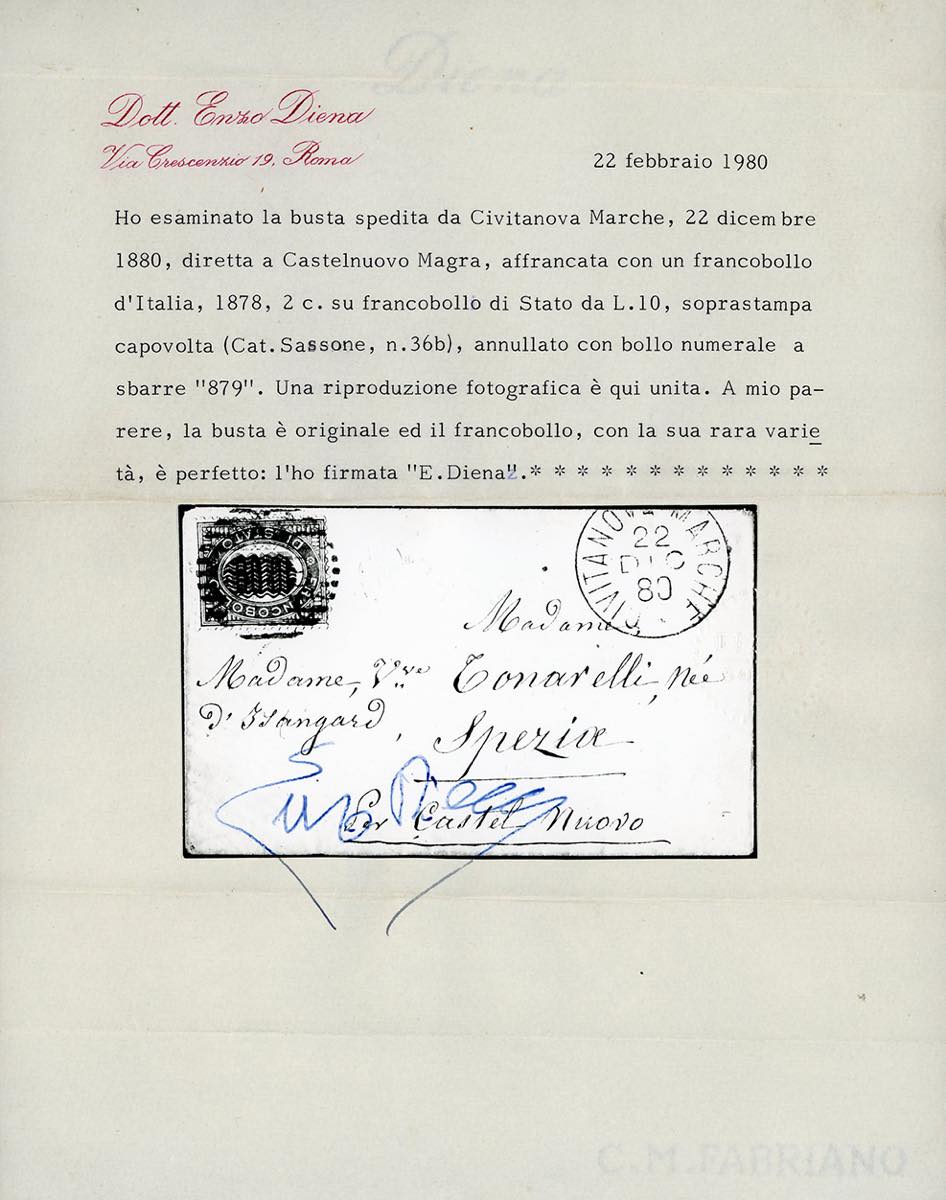 Diena
Dott. Enzo Diena
Via Crescenzio 19, Roma
22 febbraio 1980
Ho esaminato la busta spedita da Civitanova Marche, 22 dicembre
1880, diretta a Castelnuovo Magra, affrancata con un francobollo
d'Italia, 1878, 2 c. su francobollo di Stato da L.10, soprastampa
capovolta (Cat. Sassone, n.36b), annullato con bollo numerale a
sbarre "879". Una riproduzione fotografica è qui unita. A mio pa-
rere, la busta è originale ed il francobollo, con la sua rara varie
tà, è perfetto: l'ho firmata "E.Diena".* * * * * * * * * * * * *
CIVITANOVA MARCHE
22
DIC
80
Madame
Madame, Vve Tonarelli, Née
d'Isangard, Spezia
Per Castel Nuovo
Enzo Diena
C.M.FABRIANO